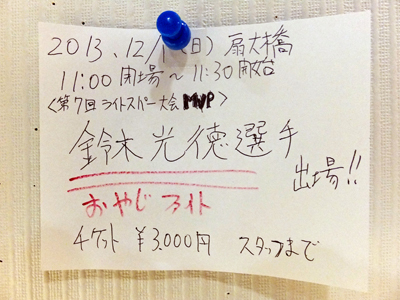 2013.12/1(日) 扇大橋
11:00 開場〜11:30開始
<第7回 ライトスパー大会 MVP>
鈴木光徳選手
出場!!
おやじファイト
チケット ¥3,000円 スタッフまで